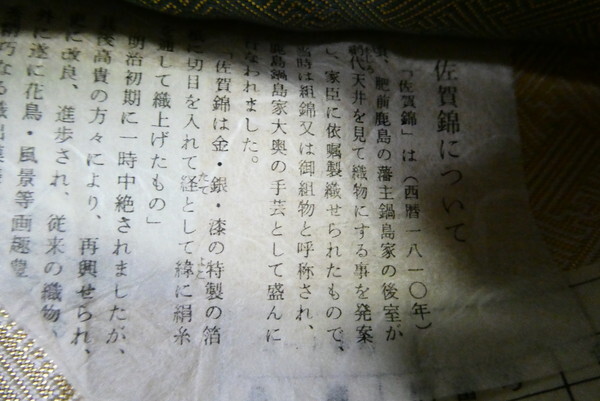 佐賀錦について
「佐賀錦」は(西暦一八一〇年)
頃、肥前鹿島の藩主鍋島家の後室が
網代天井を見て織物にする事を発案
し、家臣に依嘱製織せられたもので、
当時は組錦又は御組物と呼称され、
鹿島鍋島家大奥の手芸として盛んに
行なわれました。
「佐賀錦は金・銀・漆の特製の箔
に切目を入れて経として緯に絹糸
を通して織上げたもの」
明治初期に一時中絶されましたが、
最後高貴の方々により、再興せられ、
更に改良、進歩され、従来の織物、
外に遂に花鳥・風景等画趣豊
精巧なる織出